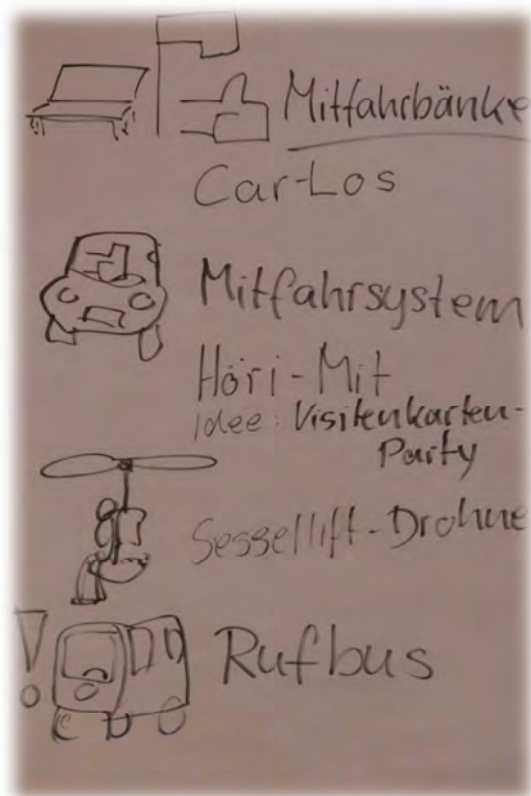 Mitfahrbänke
Car-Los
Mitfahrsystem
Höri-Mit
Idee: Visitenkarten-
Party
Sessellift-Drohne
Rufbus